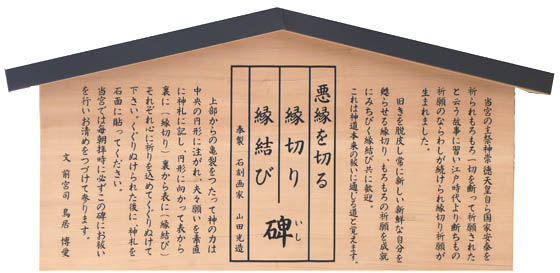 当宮の主祭神崇德天皇自ら国家安泰を
祈られもろもろ一切を断って祈願された
と云う故事に習い江戸時代より断ちもの
祈願のならわしが続けられ縁切り祈願が
生まれました。
旧きを脱皮し常に新しい新鮮な自分を
甦らせる縁切り、もろもろの祈願を成就
にみちびく縁結び共に歓迎。
これは神道本来の祓いに通じる道と覚えます。
悪縁を切る
縁切り
縁結び
碑
いし
奉製 石刻画家 山田光造
上部からの亀裂をつたって神の力は
中央の円形に注がれ、夫々願いを素直
に神札に記し、円形に向かって表から
裏に(縁切り)裏から表に(縁結び)
それぞれ心に祈りを込めてくぐりぬけて
下さい。くぐりぬけられた後に、神札を
石面に貼ってください。
当宮では毎朝拝時に必ずこの碑にお祓い
を行いお清めをつづけて参ります。
文 前宮司 鳥居 博愛